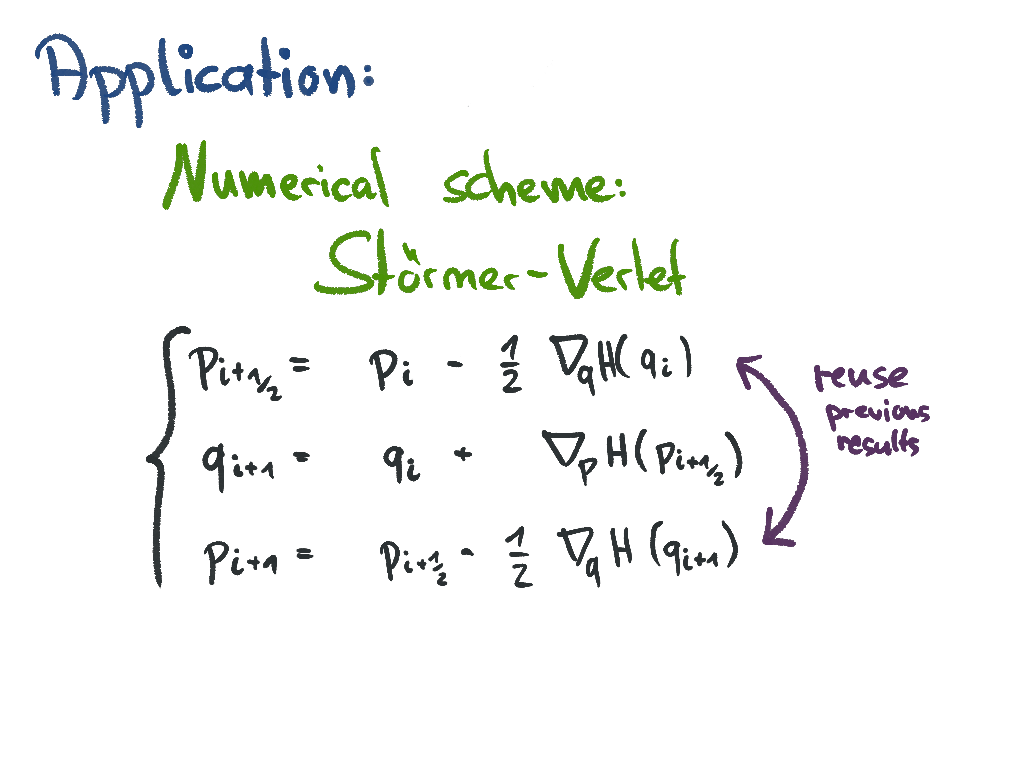 Application:
Numerical scheme:
Störmer-Verlet
p_{i+1/2} = p_i - 1/2 ∇_q H(q_i)
q_{i+1} = q_i + ∇_p H(p_{i+1/2})
p_{i+1} = p_{i+1/2} - 1/2 ∇_q H(q_{i+1})
reuse
previous
results